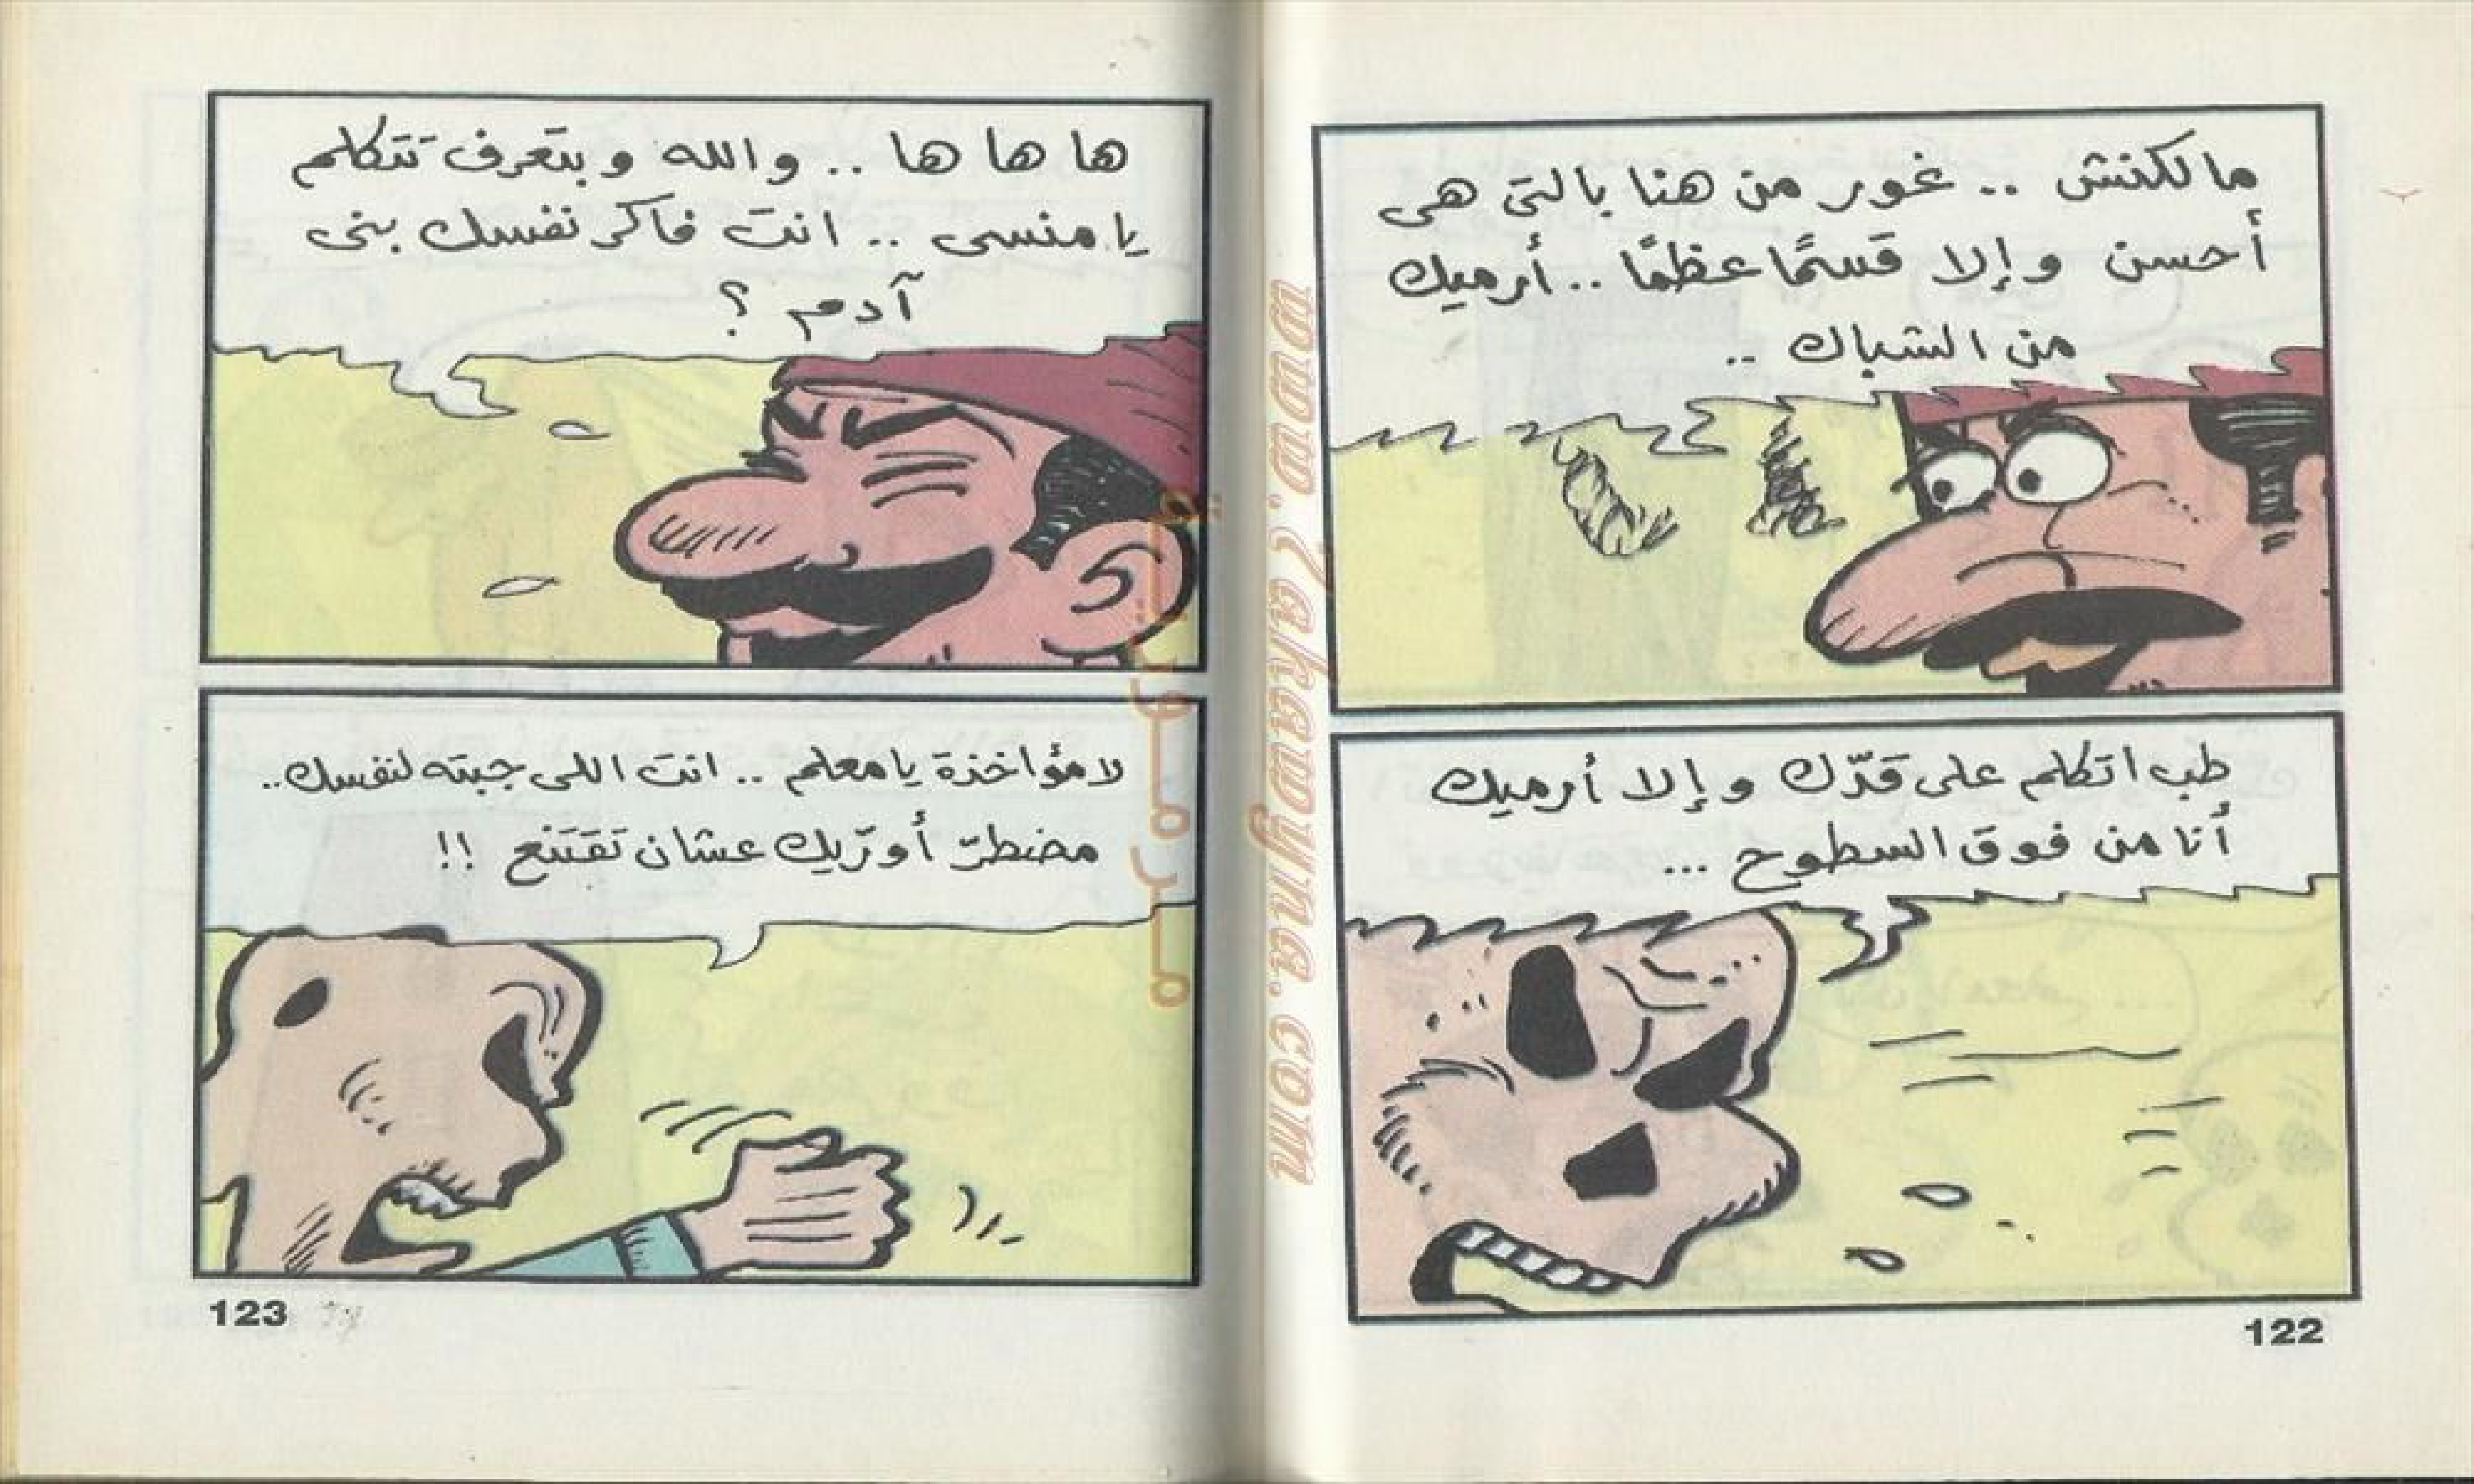 مالكنش .. غور من هنا بالتى هى
أحسن وإلا قسمًا عظمًا .. أرميك
من الشباك ..
طب اتكلم على قدّك وإلا أرميك
أنا من فوق السطوح ...
122
ها ها ها .. والله وبتعرف تتكلم
يا منسى .. انت فاكر نفسك بنى
آدم ؟
لا مؤاخذة يا معلم .. انت اللى جبته لنفسك ..
مضطرّ أورّيك عشان تقتنع !!
123
www.Zakawyna.com